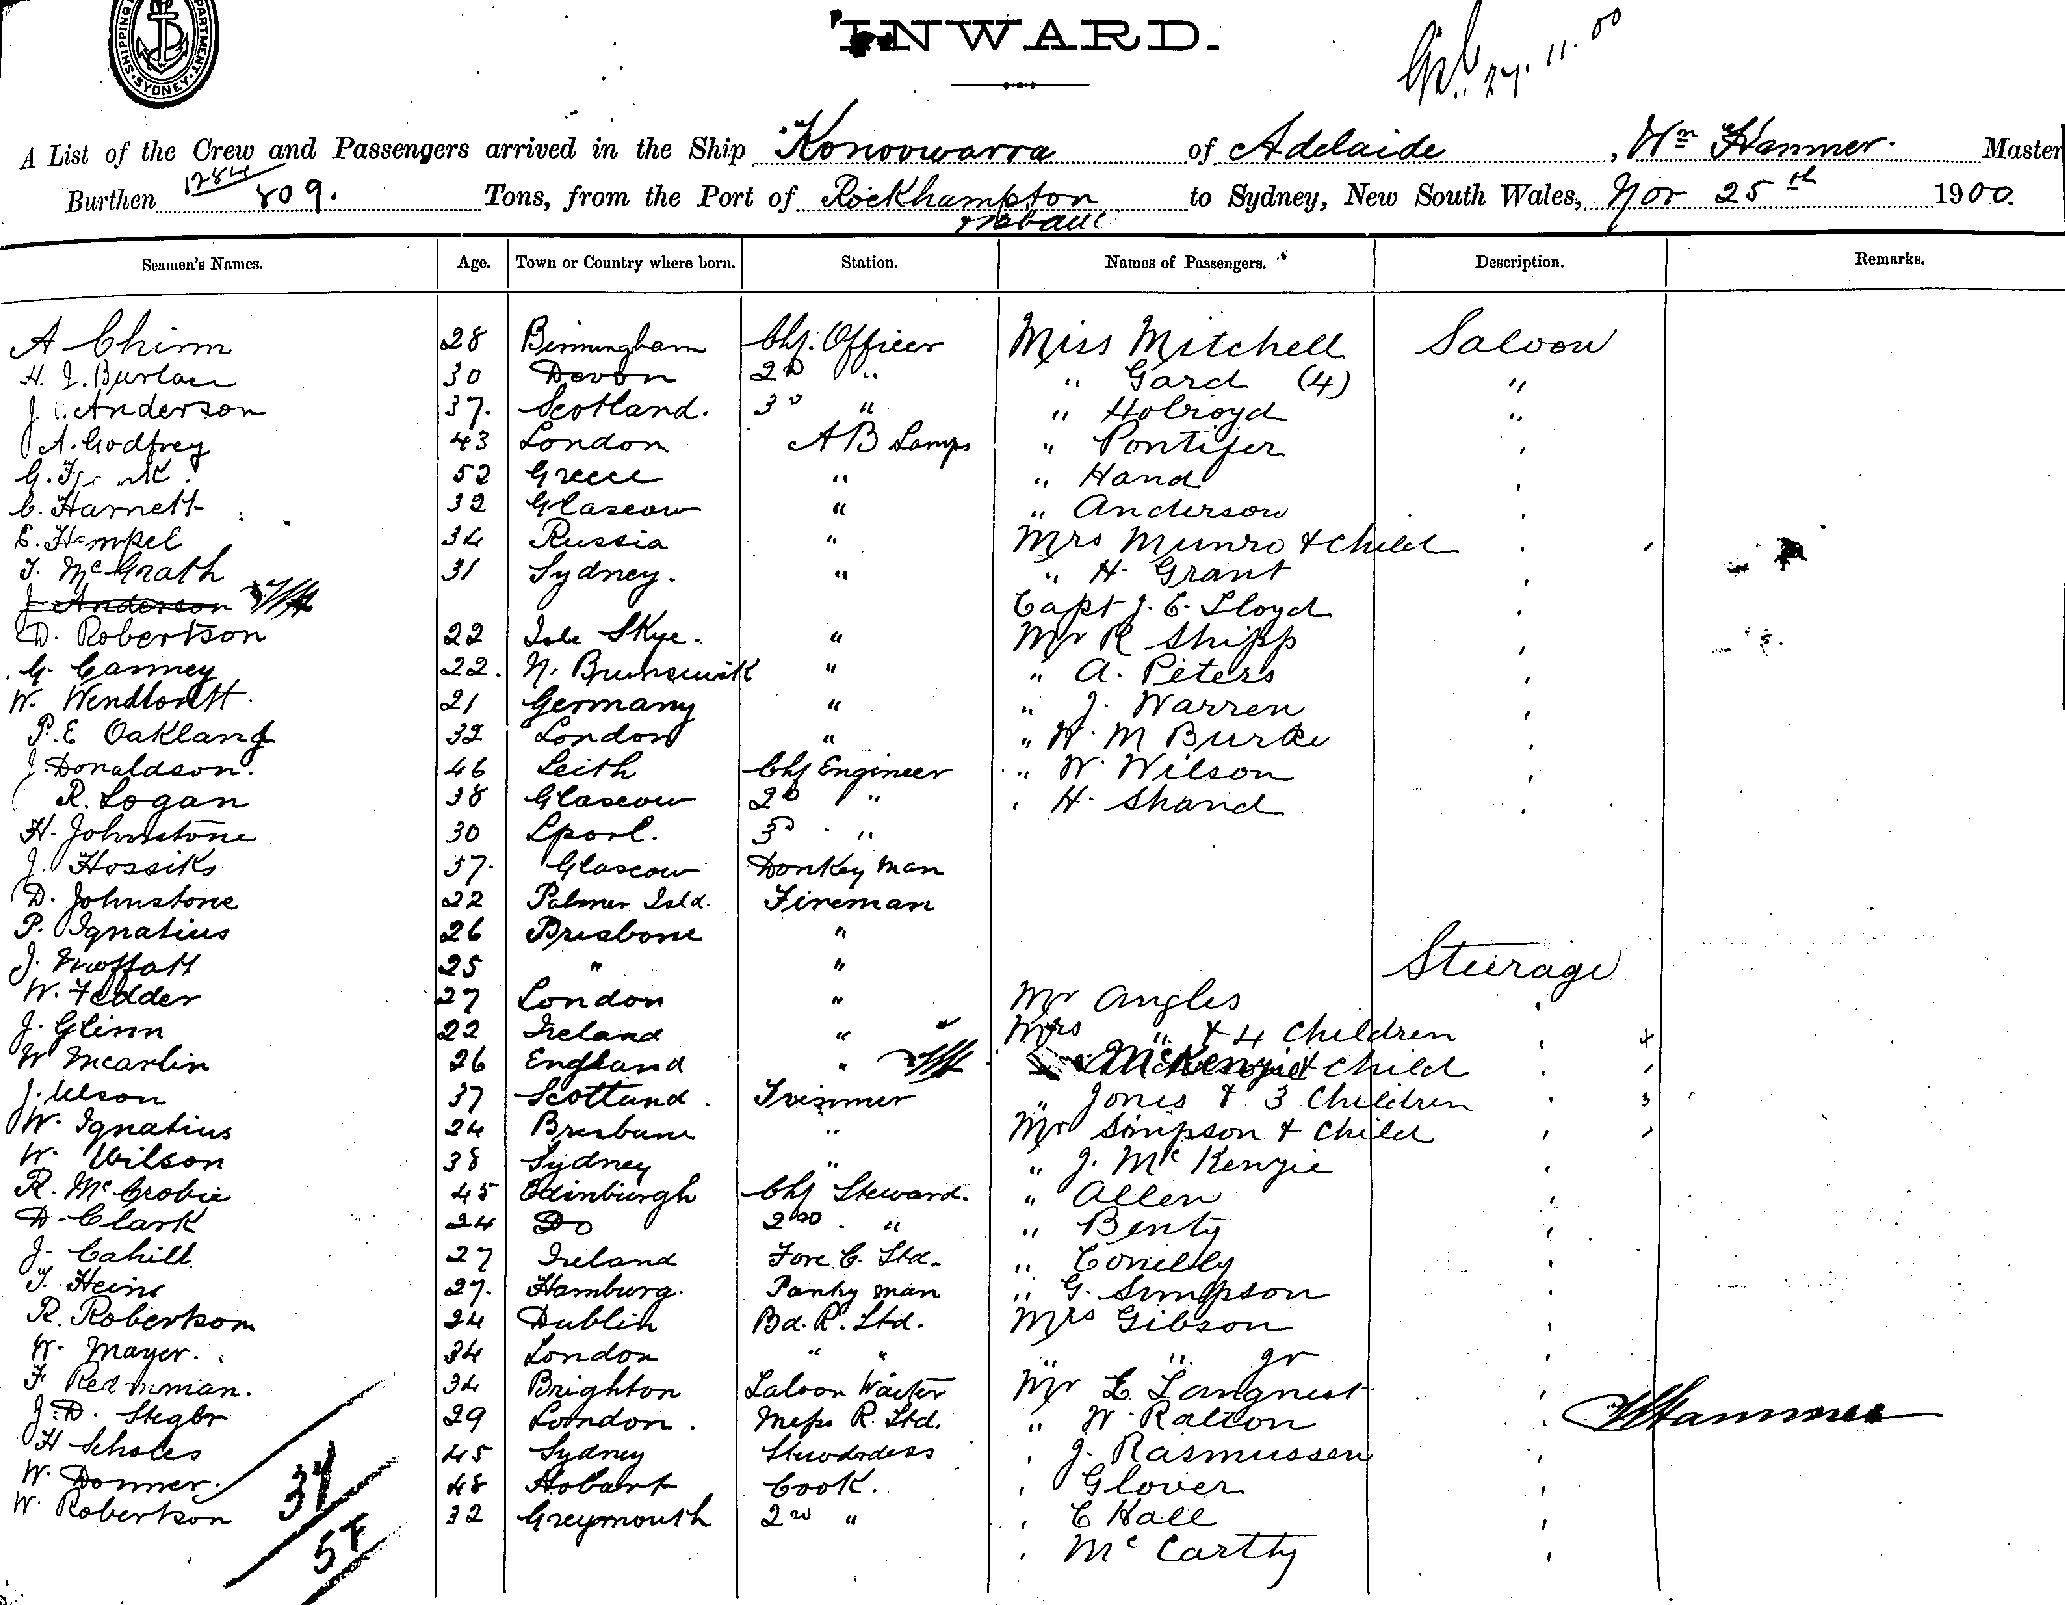 SHIPPING DEPARTMENT SYDNEY
INWARD.
27. 11. 00
A List of the Crew and Passengers arrived in the Ship Konoowarra of Adelaide, Wm Hammer. Master
Burthen 1284 809. Tons, from the Port of Rockhampton to Sydney, New South Wales, Nov 25th 1900.
Seamen's Names. Age. Town or Country where born. Station. Names of Passengers. Description. Remarks.
A Chirm 28 Birmingham Chf. Officer Miss Mitchell Saloon
H. J. 30 Devon 2D " " Gard (4) "
J. Anderson 37. Scotland. 3D " " Holroyd "
A. Godfrey 43 London AB Lamps " Pontifer
G. 52 Greece " " Hand
C. Harnett 32 Glascow " " Anderson
E. Hempel 34 Russia " Mrs Munro & Child
T. McGrath 31 Sydney. " " H. Grant
J Anderson Capt J. E. Lloyd
D. Robertson 22 Isle Skye. " Mr R Shipp
G. Canney 22. N. Brunswick " " A. Peters
W. 21 Germany " " J. Warren
P. E Oakland 32 London " " W. M Burke
J. Donaldson. 46 Leith Chf Engineer " W. Wilson
R. Logan 38 Glascow 2D " " H. Shand
H. Johnstone 30 Lpool. 3D "
J. Hossiks 37. Glascow Donkey man
D. Johnstone 22 Palmer Isld. Fireman
P. Ignatius 26 Brisbane "
J. Moffatt 25 " " Steerage
W. Fedder 27 London " Mr Angles
J. Glinn 22 Ireland " Mrs " & 4 Children 4
W Mcarlin 26 England " McKenzie & Child
J. 37 Scotland. Trimmer " Jones & 3 Children 3
W. Ignatius 24 Brisbane " Mr Simpson & Child
W. Wilson 38 Sydney " " J. McKenzie
R. McCrobie 45 Edinburgh Chf Steward. " Allen
D. Clark 24 Do 2nd " " Benty
J. Cahill 27 Ireland Fore C. Std. " Conelly
T. Heins 27. Hamburg. Pantry man " G. Simpson
R. Robertson 24 Dublin Bd. R. Std. Mrs Gibson
W. Mayer. 34 London " " " " jr
F 34 Brighton Saloon Waiter Mr L.
J. D. 29 London. Mess R. Std. " W. Ralton
H Scholes 45 Sydney Stewdrdess J. Rasmussen
W. Donner. 48 Hobart Cook. Glover
W. Robertson 32 Greymouth 2nd " C Hall
McCartty
WHammer
37
57